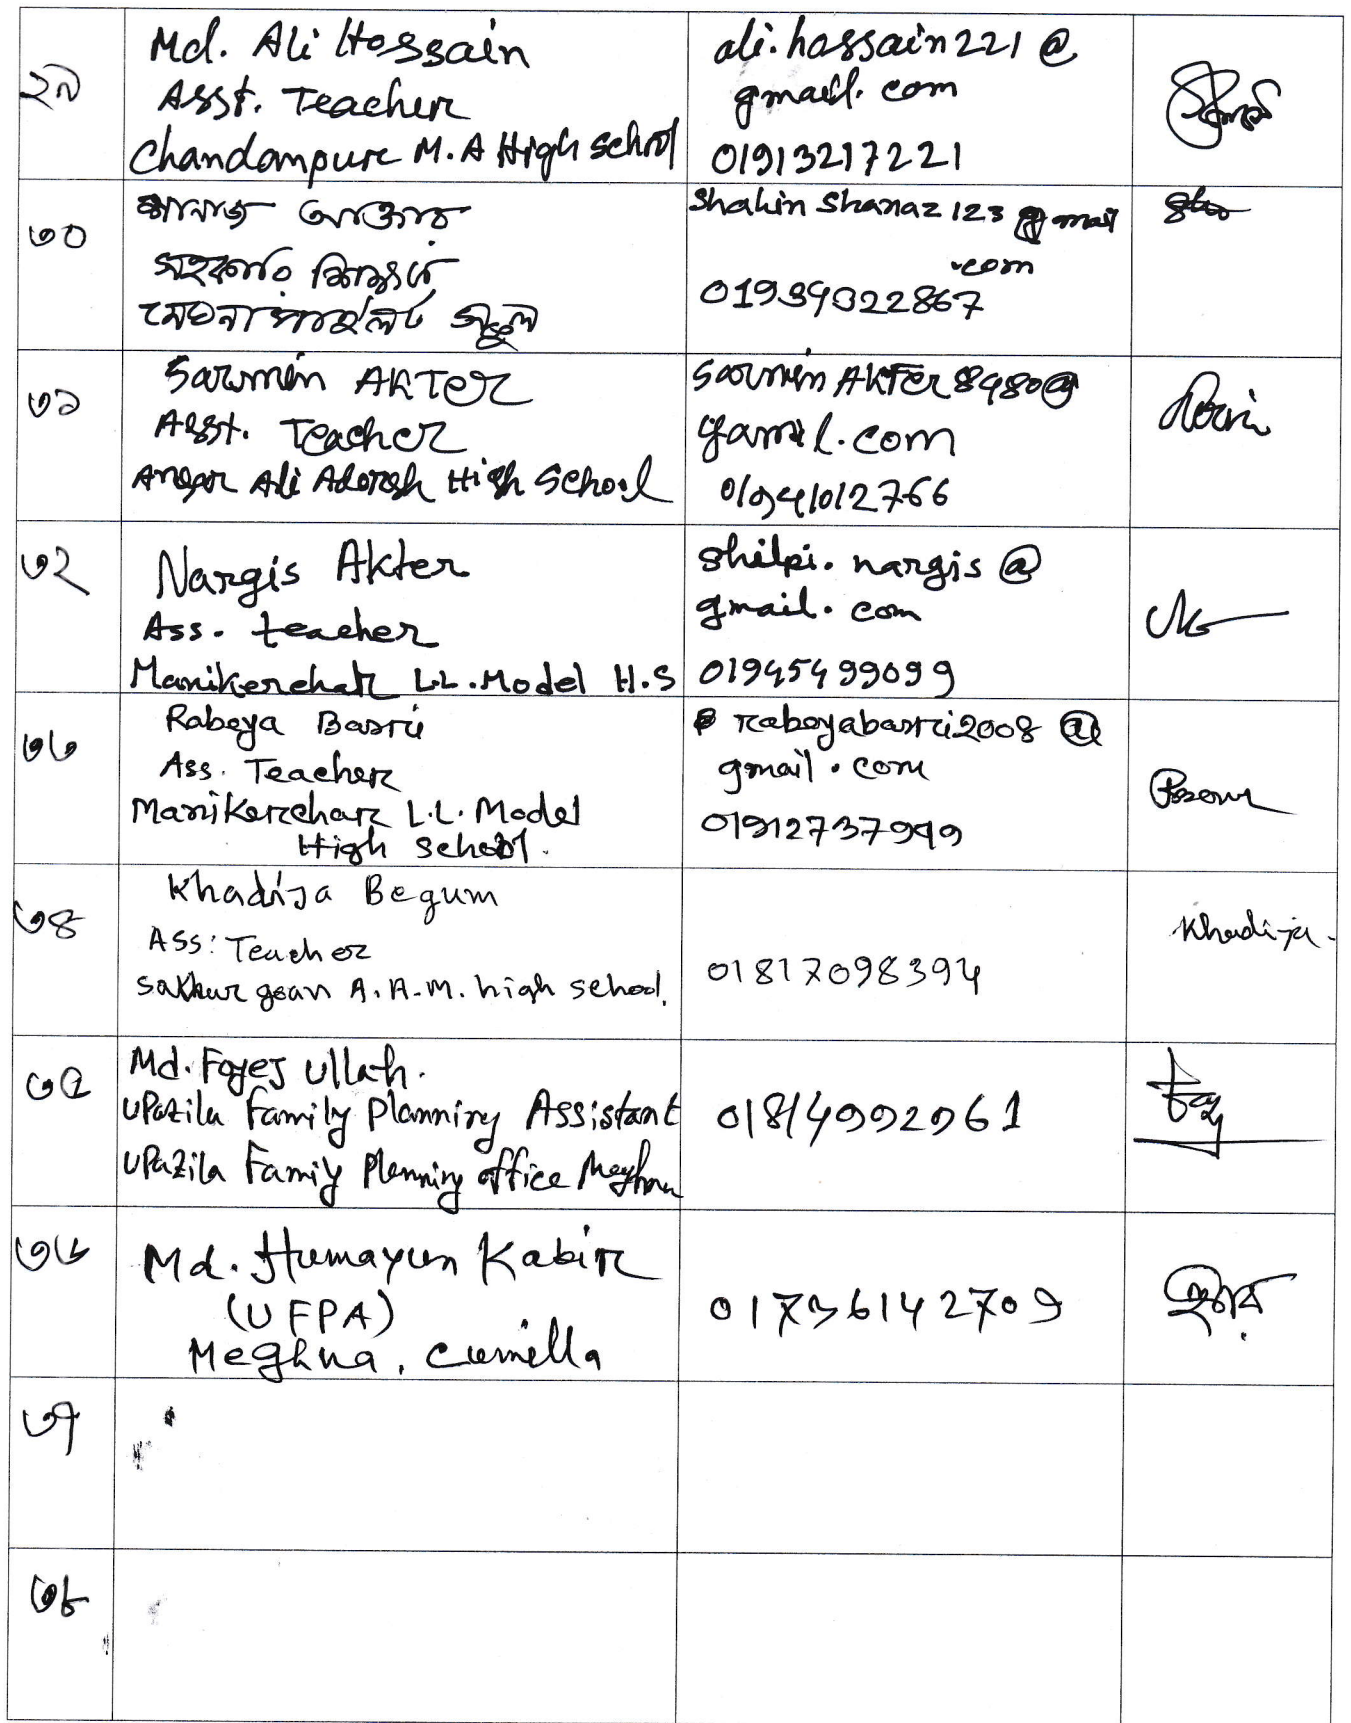 ২৯
Md. Ali Hossain
Asst. Teacher
Chandanpure M.A High School
ali.hossain221@
gmail.com
01913217221
৩০
শানাজ আক্তার
সহকারী শিক্ষক
মেঘনা পাইলট স্কুল
Shahin Shanaz 123 @ gmail
.com
01939322867
৩১
Sarmin AKTER
Asst. Teacher
Ali Adorsh High School
Sarmin AKTER 8980@
gamil.com
01941012766
৩২
Nargis Akter
Ass. teacher
Manikerchar L.L. Model H.S
shilpi.nargis@
gmail.com
01945499099
৩৩
Rabeya Basri
Ass. Teacher
Manikerchar L.L. Model
High School.
rabeyabasri2008@
gmail.com
01912737949
৩৪
Khadija Begum
Ass: Teacher
A.A.M. high school.
01817098394
Khadija
৩৫
Md. Foyej ullah.
UPazila Family Planning Assistant
UPazila Family Planning office Meghna
01814992961
৩৬
Md. Humayun Kabir
(UFPA)
Meghna, Cumilla
01736142709
৩৭
৩৮